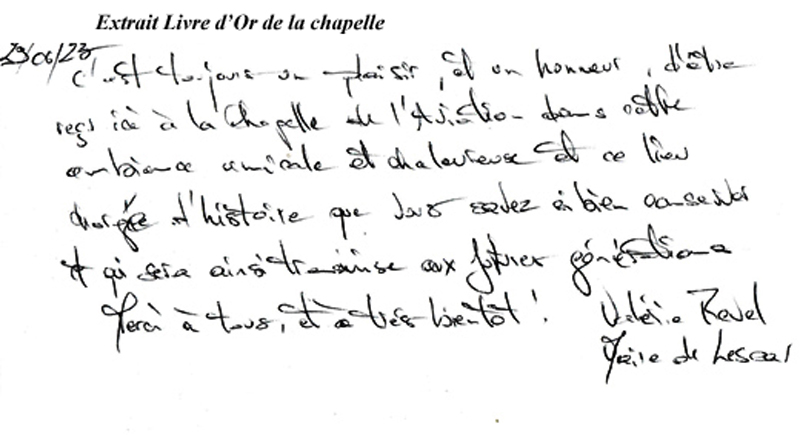 Extrait Livre d'Or de la chapelle
29/06/23
C'est toujours un plaisir, et un honneur, d'être
reçs ici à la Chapelle de l'Aviation dans cette
ambiance amicale et chaleureuse et ce lieu
chargée d'histoire que vous savez si bien conserver
et qui sera ainsi transmise aux futures générations
Merci à tous, et à très bientôt ! Valérie Revel
Maire de Lescar